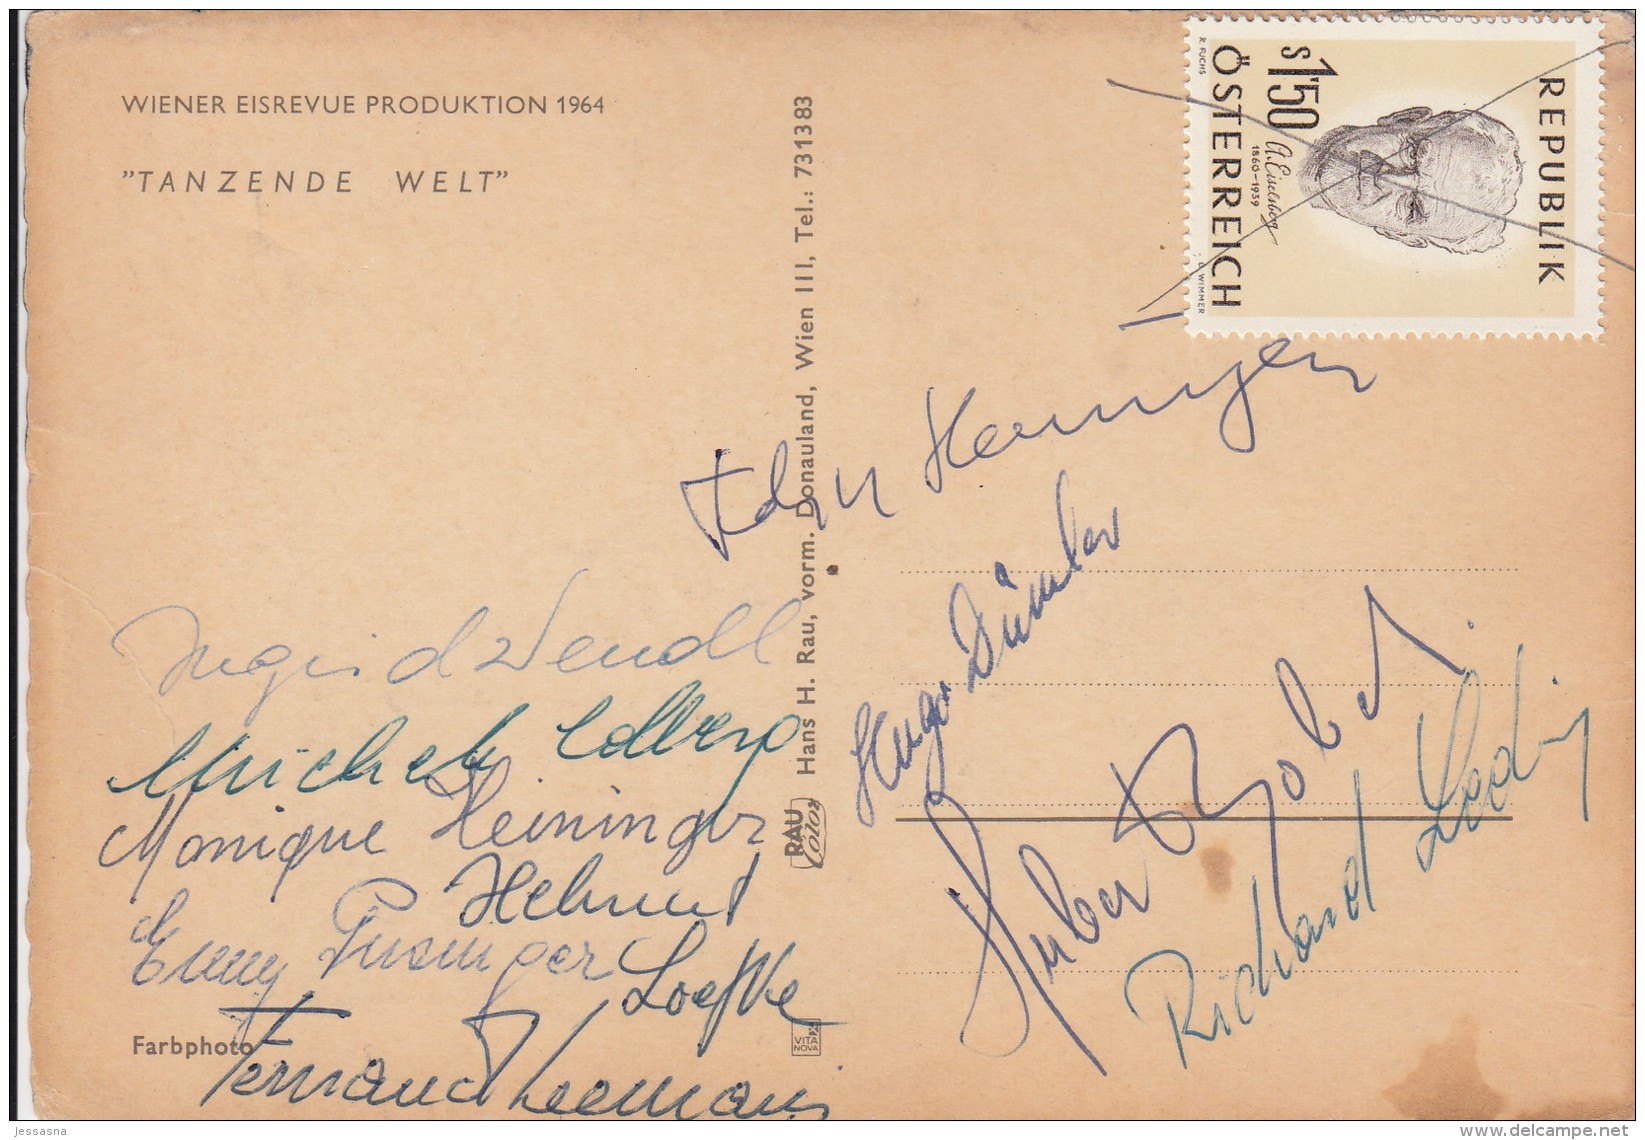 WIENER EISREVUE PRODUKTION 1964
"TANZENDE WELT"
Hans H. Rau, vorm. Donauland, Wien III, Tel.: 731383
RAU
Color
REPUBLIK
S 1'50
A. Eiselsberg
1860-1939
ÖSTERREICH
R. FUCHS
G. WIMMER
Hugo Dümler
Ingrid Wendl
Michel
Monique Heininger
Helmut
Loeffke
Emmy Puzinger
Fernand Leemans
Richard
Farbphoto
VITA
NOVA
jessasna
delcampe.net